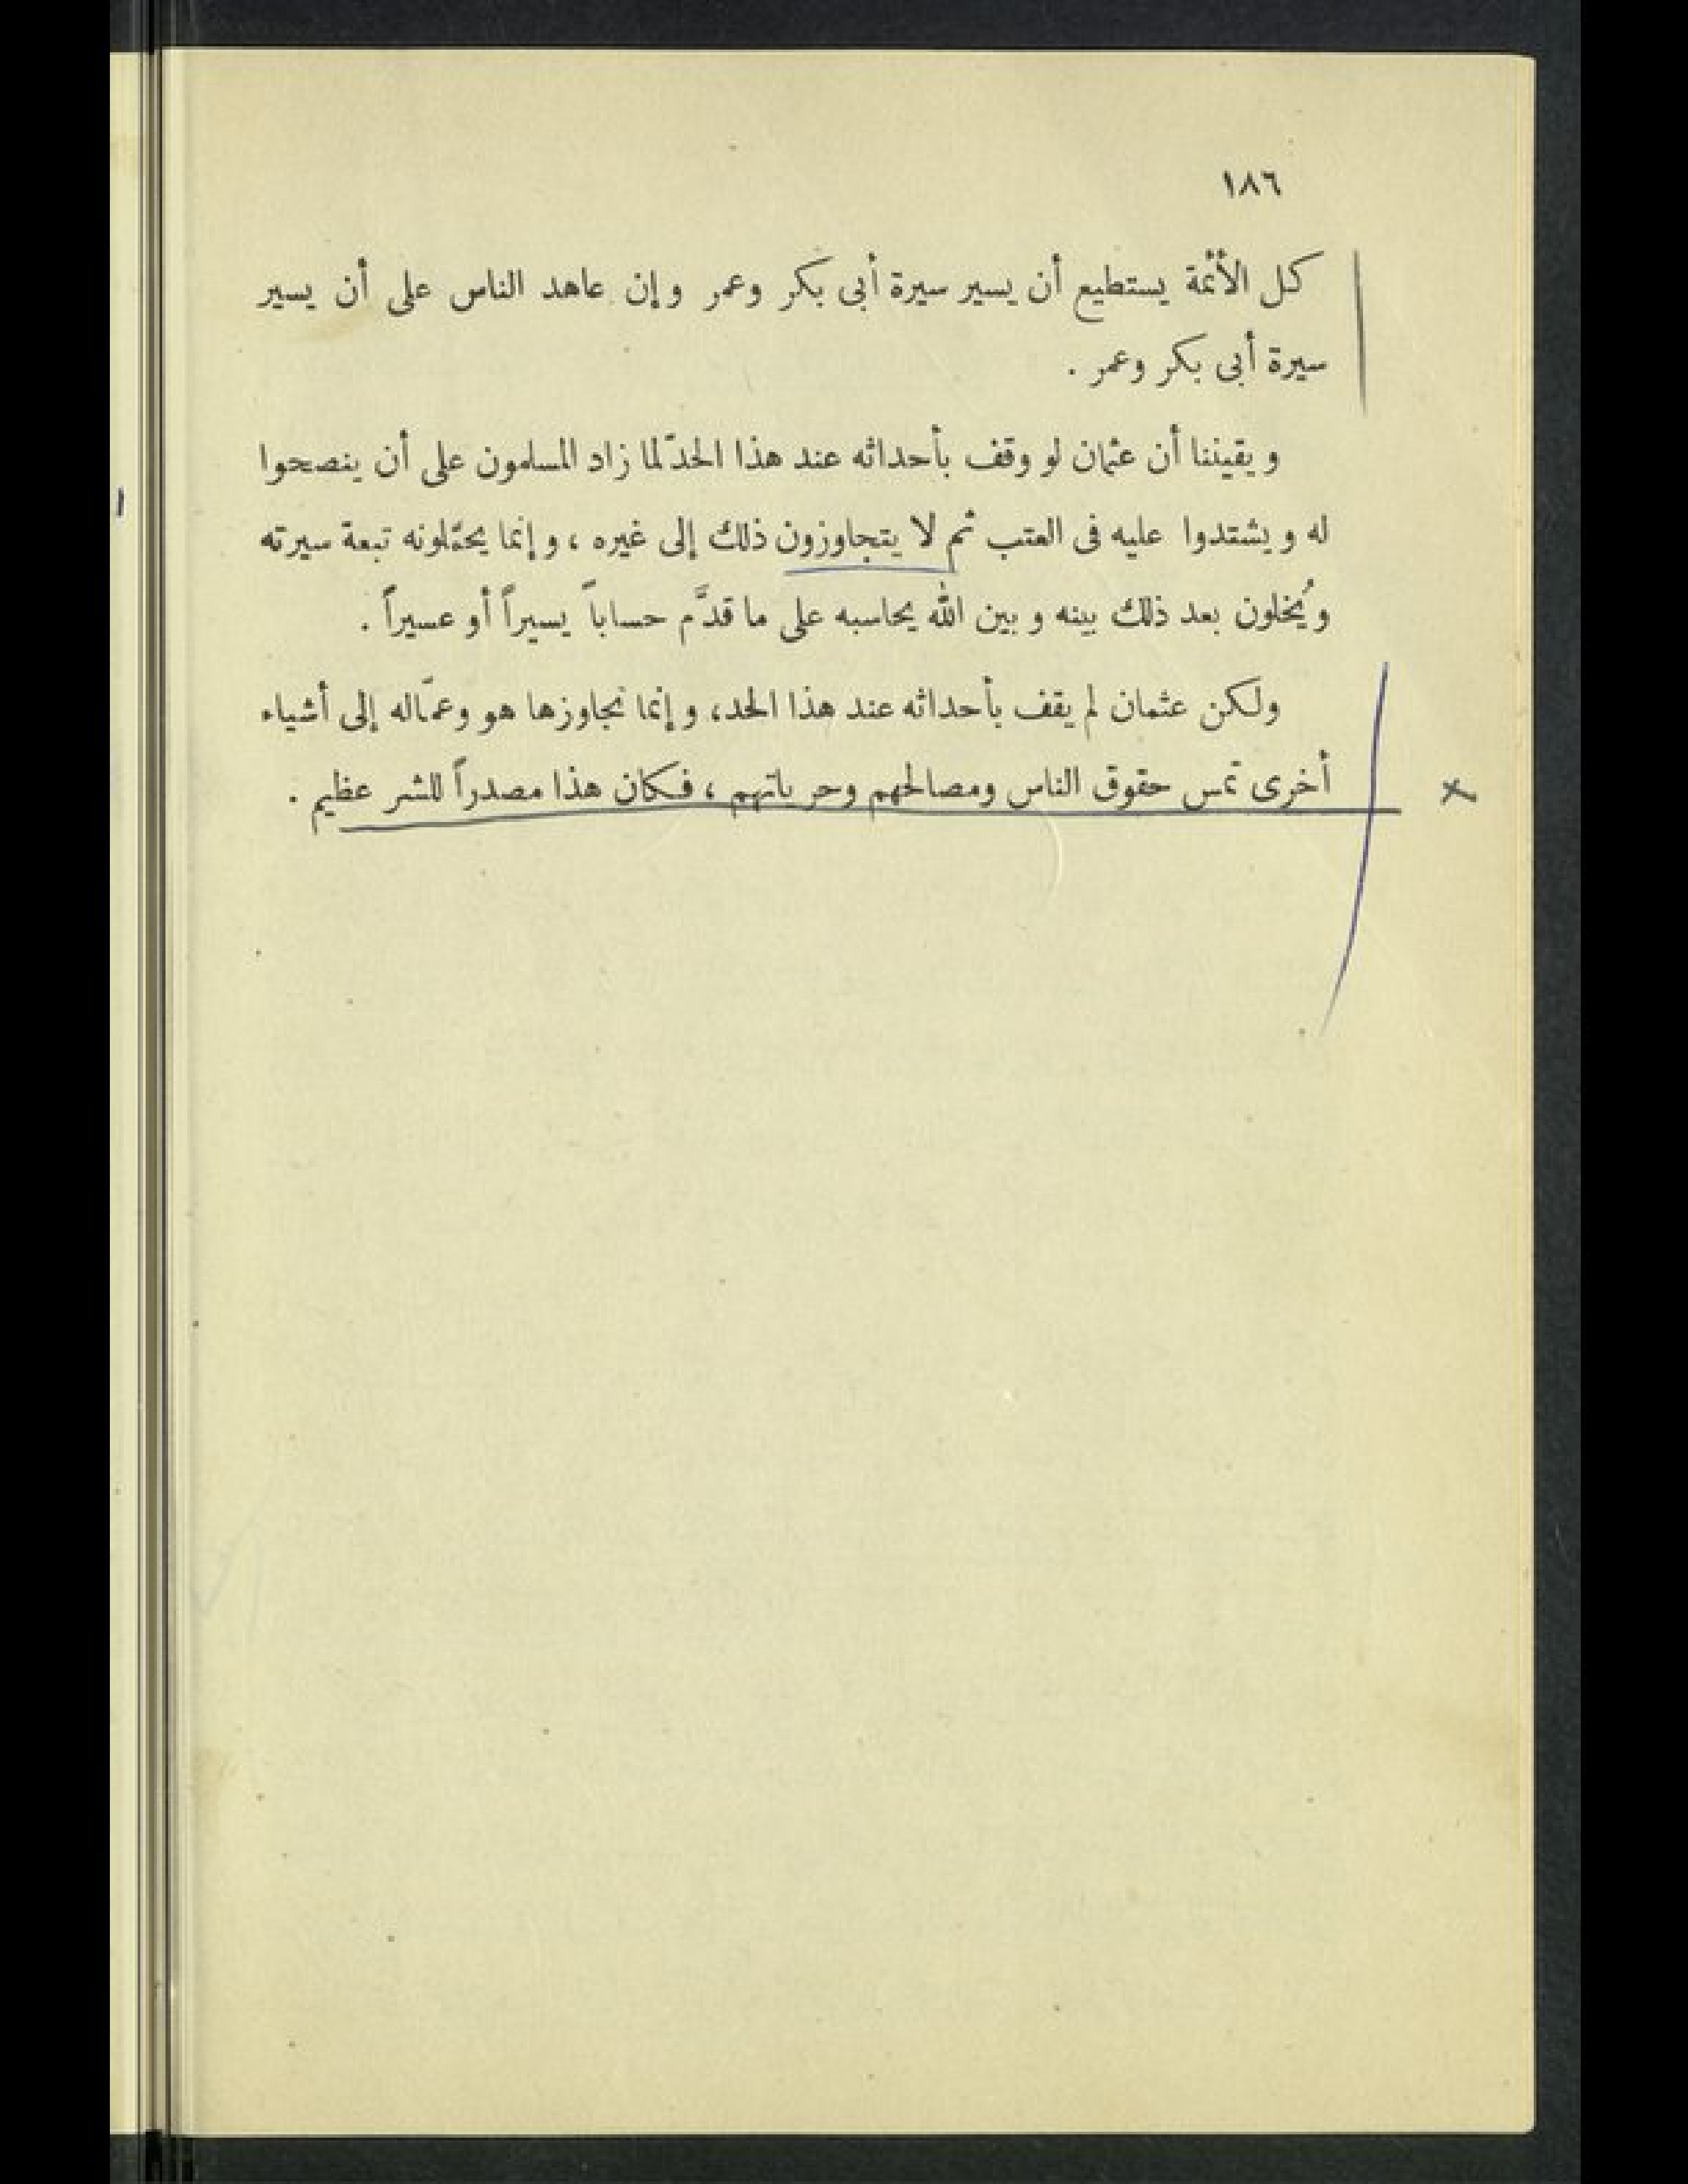 ١٨٦
كل الأئمة يستطيع أن يسير سيرة أبى بكر وعمر وإن عاهد الناس على أن يسير
سيرة أبى بكر وعمر .
ويقيننا أن عثمان لو وقف بأحداثه عند هذا الحدّ لما زاد المسلمون على أن ينصحوا
له ويشتدوا عليه فى العتب ثم لا يتجاوزون ذلك إلى غيره ، وإنما يحمّلونه تبعة سيرته
ويُخلون بعد ذلك بينه وبين الله يحاسبه على ما قدَّم حساباً يسيراً أو عسيراً .
ولكن عثمان لم يقف بأحداثه عند هذا الحد، وإنما تجاوزها هو وعمّاله إلى أشياء
أخرى تمس حقوق الناس ومصالحهم وحرياتهم ، فكان هذا مصدراً للشر عظيم .